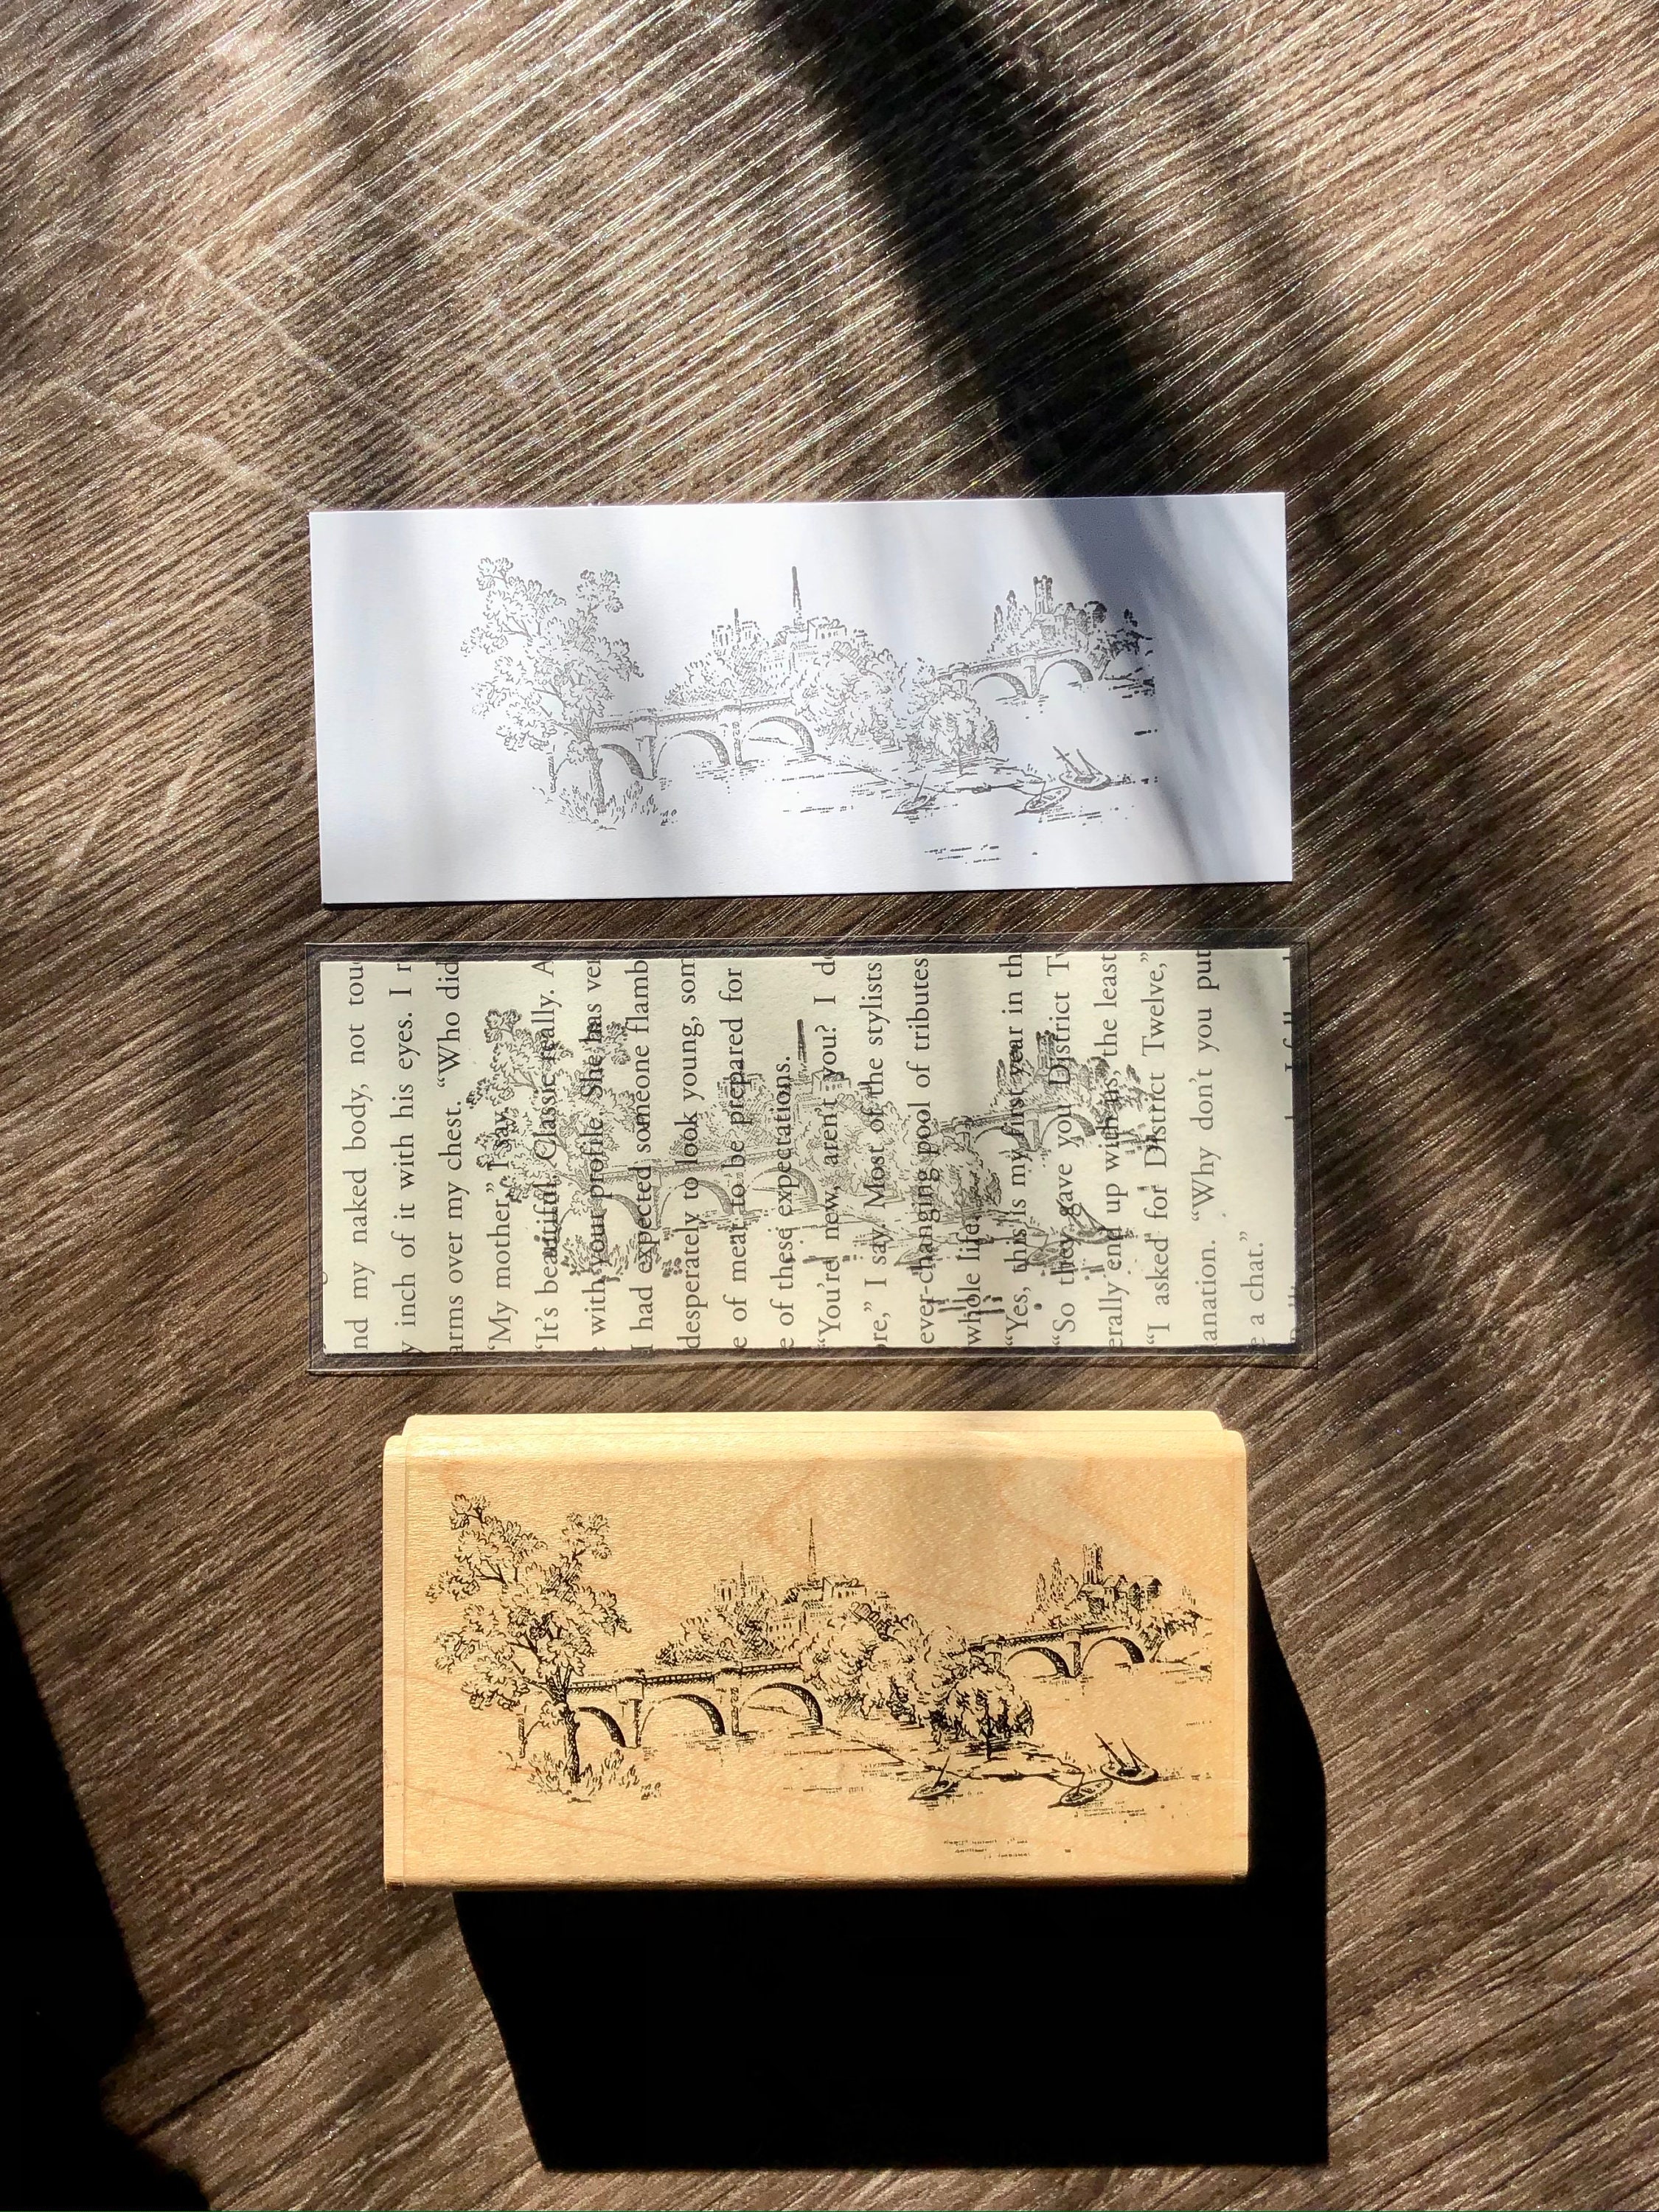 nd my naked body, not tou
y inch of it with his eyes. I r
arms over my chest. “Who did
“My mother,” I say.
“It’s beautiful. Classic really. A
with your profile. She has ver
I had expected someone flamb
desperately to look young, som
e of meat to be prepared for
e of these expectations.
“You’re new, aren’t you? I do
ore,” I say. Most of the stylists
ever-changing pool of tributes
whole life.
“Yes, this is my first year in th
“So they gave you District Tw
erally end up with us, the least
“I asked for District Twelve,”
anation. “Why don’t you put
e a chat.”